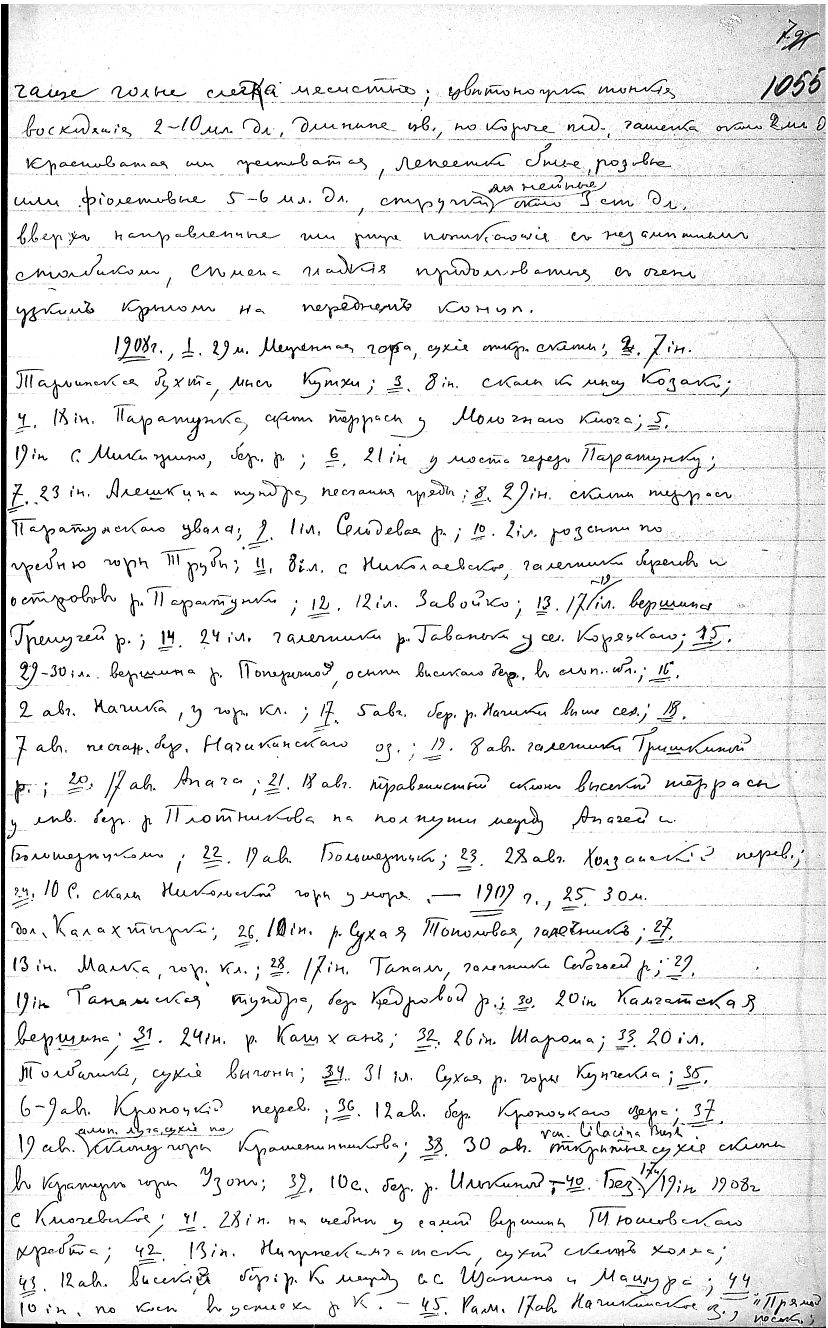 79
1055
чаще голые слегка мясистые; цвѣтоножки тонкія
восходящія 2-10 мл. дл., длиннѣе цв., но короче пл., чашечка около 2 мл. д
красноватая или желтоватая, лепестки бѣлые, розовые
или фіолетовые 5-6 мл. дл., стручки линейные около 3 ст. дл.
вверхъ направленные или рѣже поникающіе съ незамѣтнымъ
столбикомъ, сѣмена гладкія продолговатыя съ очень
узкимъ крыломъ на переднемъ концѣ.
1908 г., 1. 29 м. Мишенная гора, сухіе откр. склоны; 2. 7 ін.
Тарьинская бухта, мысъ Кутхи; 3. 8 ін. скалы къ мысу Козакъ;
4. 18 ін. Паратунка, склонъ террасы у Молочнаго ключа; 5.
19 ін. с. Микижино, бер. р.; 6. 21 ін. у моста черезъ Паратунку;
7. 23 ін. Алешкина тундра, песчаныя гряды; 8. 29 ін. склоны террасы
Паратунскаго увала; 9. 1 іл. Сельдевая р.; 10. 2 іл. розсыпи по
гребню горы Трубы; 11. 8 іл. с. Николаевское, галечники береговъ и
острововъ р. Паратунки; 12. 12 іл. Завойко; 13. 17-19 іл. вершина
Гремучей р.; 14. 24 іл. галечники р. Гаванки у сел. Коряцкаго; 15.
29-30 іл. вершина р. Поперечной, осыпи высокаго бер. въ альп. обл.; 16.
2 авг. Начика, у гор. кл.; 17. 5 авг. бер. р. Начики выше сел.; 18.
7 ав. песчан. бер. Начикинскаго оз.; 19. 8 ав. галечники Тришкиной
р.; 20. 17 ав. Апача; 21. 18 авг. травянистый склонъ высокой террасы
у лѣв. бер. р. Плотникова на полпути между Апачей и
Большерѣцкомъ; 22. 19 ав. Большерѣцкъ; 23. 28 авг. Халзанскій перев.;
24. 10 С. скалы Никольской горы у моря. — 1909 г., 25. 30 м.
дол. Калахтырки; 26. 10 ін. р. Сухая Тополовая, галечникъ; 27.
13 ін. Малка, гор. кл.; 28. 17 ін. Ганалы, галечники Собачьей р.; 29.
19 ін. Ганальская тундра, бер. Кедровой р.; 30. 20 ін. Камчатская
вершина; 31. 24 ін. р. Кашханъ; 32. 26 ін. Шарома; 33. 20 іл.
Толбачикъ, сухіе выгоны; 34. 31 іл. Сухая р. горы Кунчекла; 35.
6-9 ав. Кроноцкій перев.; 36. 12 ав. бер. Кроноцкаго озера; 37.
19 ав. альп. луга, сухіе по склону горы Крашенинникова; 38. 30 ав. var. lilacina Bush открытые сухіе склоны
въ кратерѣ горы Узонъ; 39. 10 с. бер. р. -40. Без 19 ін. 1908 г.
с. Ключевское; 41. 28 ін. на щебнѣ у самой вершины Тюшовскаго
хребта; 42. 13 іл. Нижнекамчатскъ, сухой склонъ холма;
43. 12 ав. высокій бер. р. К. между с.с. Щапино и Машура; 44.
10 ін. по косѣ въ устьяхъ р. К. — 45. Рам. 17 ав. Начикинское оз., "Прямой